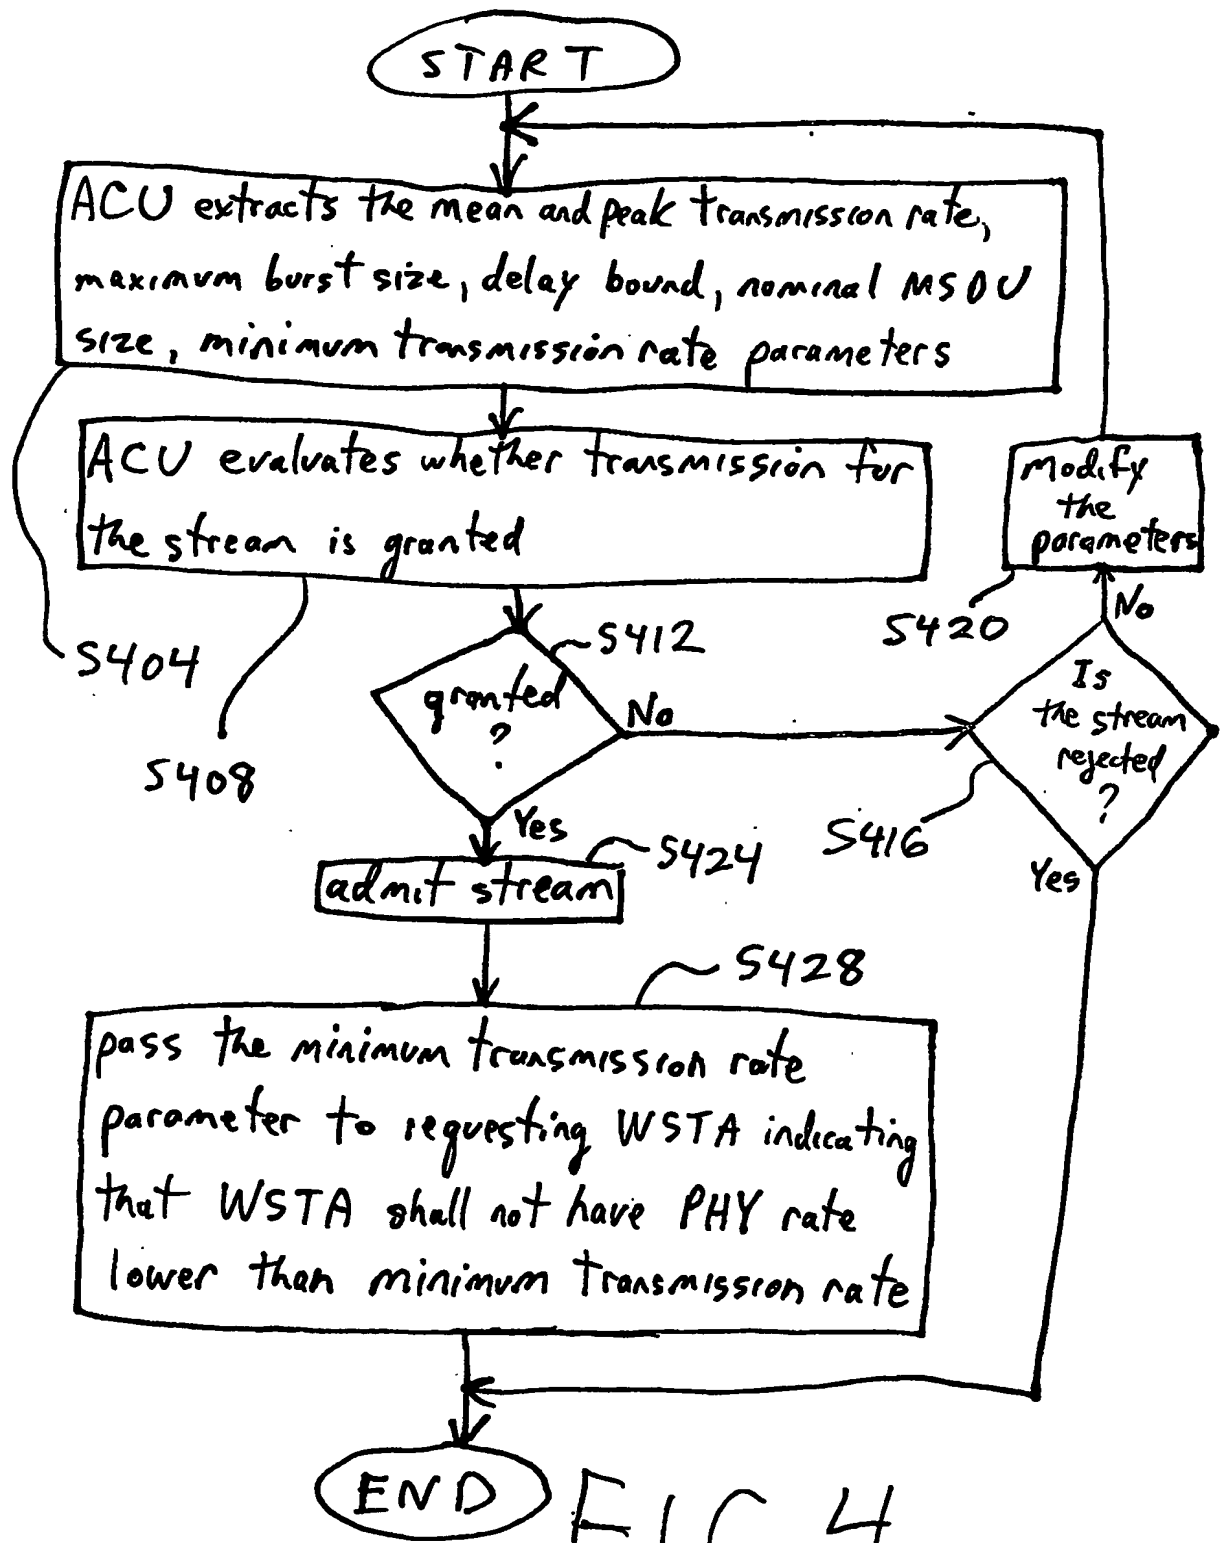 START
ACU extracts the mean and peak transmission rate,
maximum burst size, delay bound, nominal MSDU
size, minimum transmission rate parameters
ACU evaluates whether transmission for
the stream is granted
modify
the
parameters
S420
No
S404
S408
S412
granted
?
No
Is
the stream
rejected
?
S416
Yes
Yes
S424
admit stream
S428
pass the minimum transmission rate
parameter to requesting WSTA indicating
that WSTA shall not have PHY rate
lower than minimum transmission rate
END
FIG 4